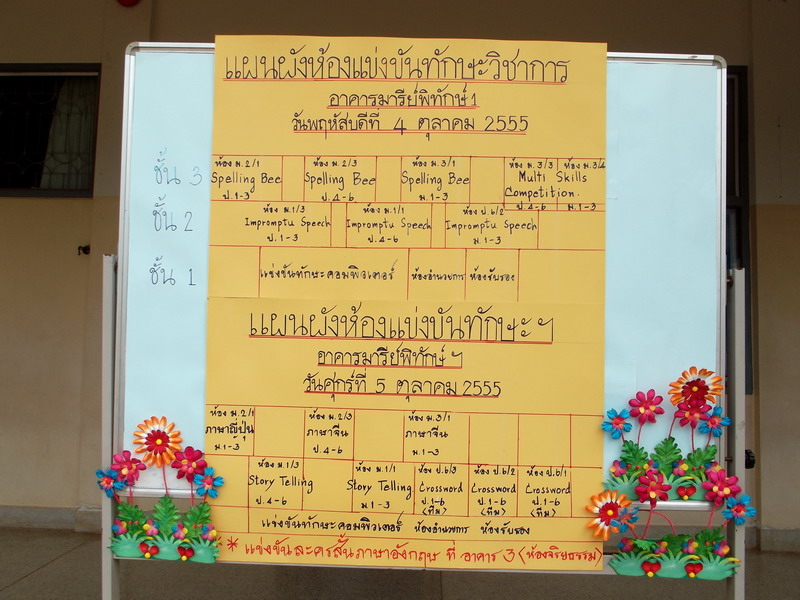 แผนผังห้องแข่งขันทักษะวิชาการ
อาคารมารีย์พิทักษ์ 1
วันพฤหัสบดีที่ 4 ตุลาคม 2555
ชั้น 3
ห้อง ม.2/1 ห้อง ม.2/3 ห้อง ม.3/1 ห้อง ม.3/3 ห้อง ม.3/4
Spelling Bee Spelling Bee Spelling Bee Multi Skills
Competition.
ป.1-3 ป.4-6 ม.1-3 ป.4-6 ม.1-3
ชั้น 2
ห้อง ม.1/3 ห้อง ม.1/1 ห้อง ป.6/2
Impromptu Speech Impromptu Speech Impromptu Speech
ป.1-3 ป.4-6 ม.1-3
ชั้น 1
แข่งขันทักษะคอมพิวเตอร์ ห้องอำนวยการ ห้องรับรอง
แผนผังห้องแข่งขันทักษะฯ
อาคารมารีย์พิทักษ์ฯ
วันศุกร์ที่ 5 ตุลาคม 2555
ห้อง ม.2/1 ห้อง ม.2/3 ห้อง ม.3/1
ภาษาญี่ปุ่น ภาษาจีน ภาษาจีน
ม.1-3 ป.4-6 ม.1-3
ห้อง ม.1/3 ห้อง ม.1/1 ห้อง ป.6/3 ห้อง ป.6/2 ห้อง ป.6/1
Story Telling Story Telling Crossword Crossword Crossword
ป.4-6 ม.1-3 ป.1-6 ป.1-6 ป.1-6
(ทีม) (ทีม) (ทีม)
แข่งขันทักษะคอมพิวเตอร์ ห้องอำนวยการ ห้องรับรอง
* แข่งขันละครสั้นภาษาอังกฤษ ที่ อาคาร 3 (ห้องจริยธรรม)